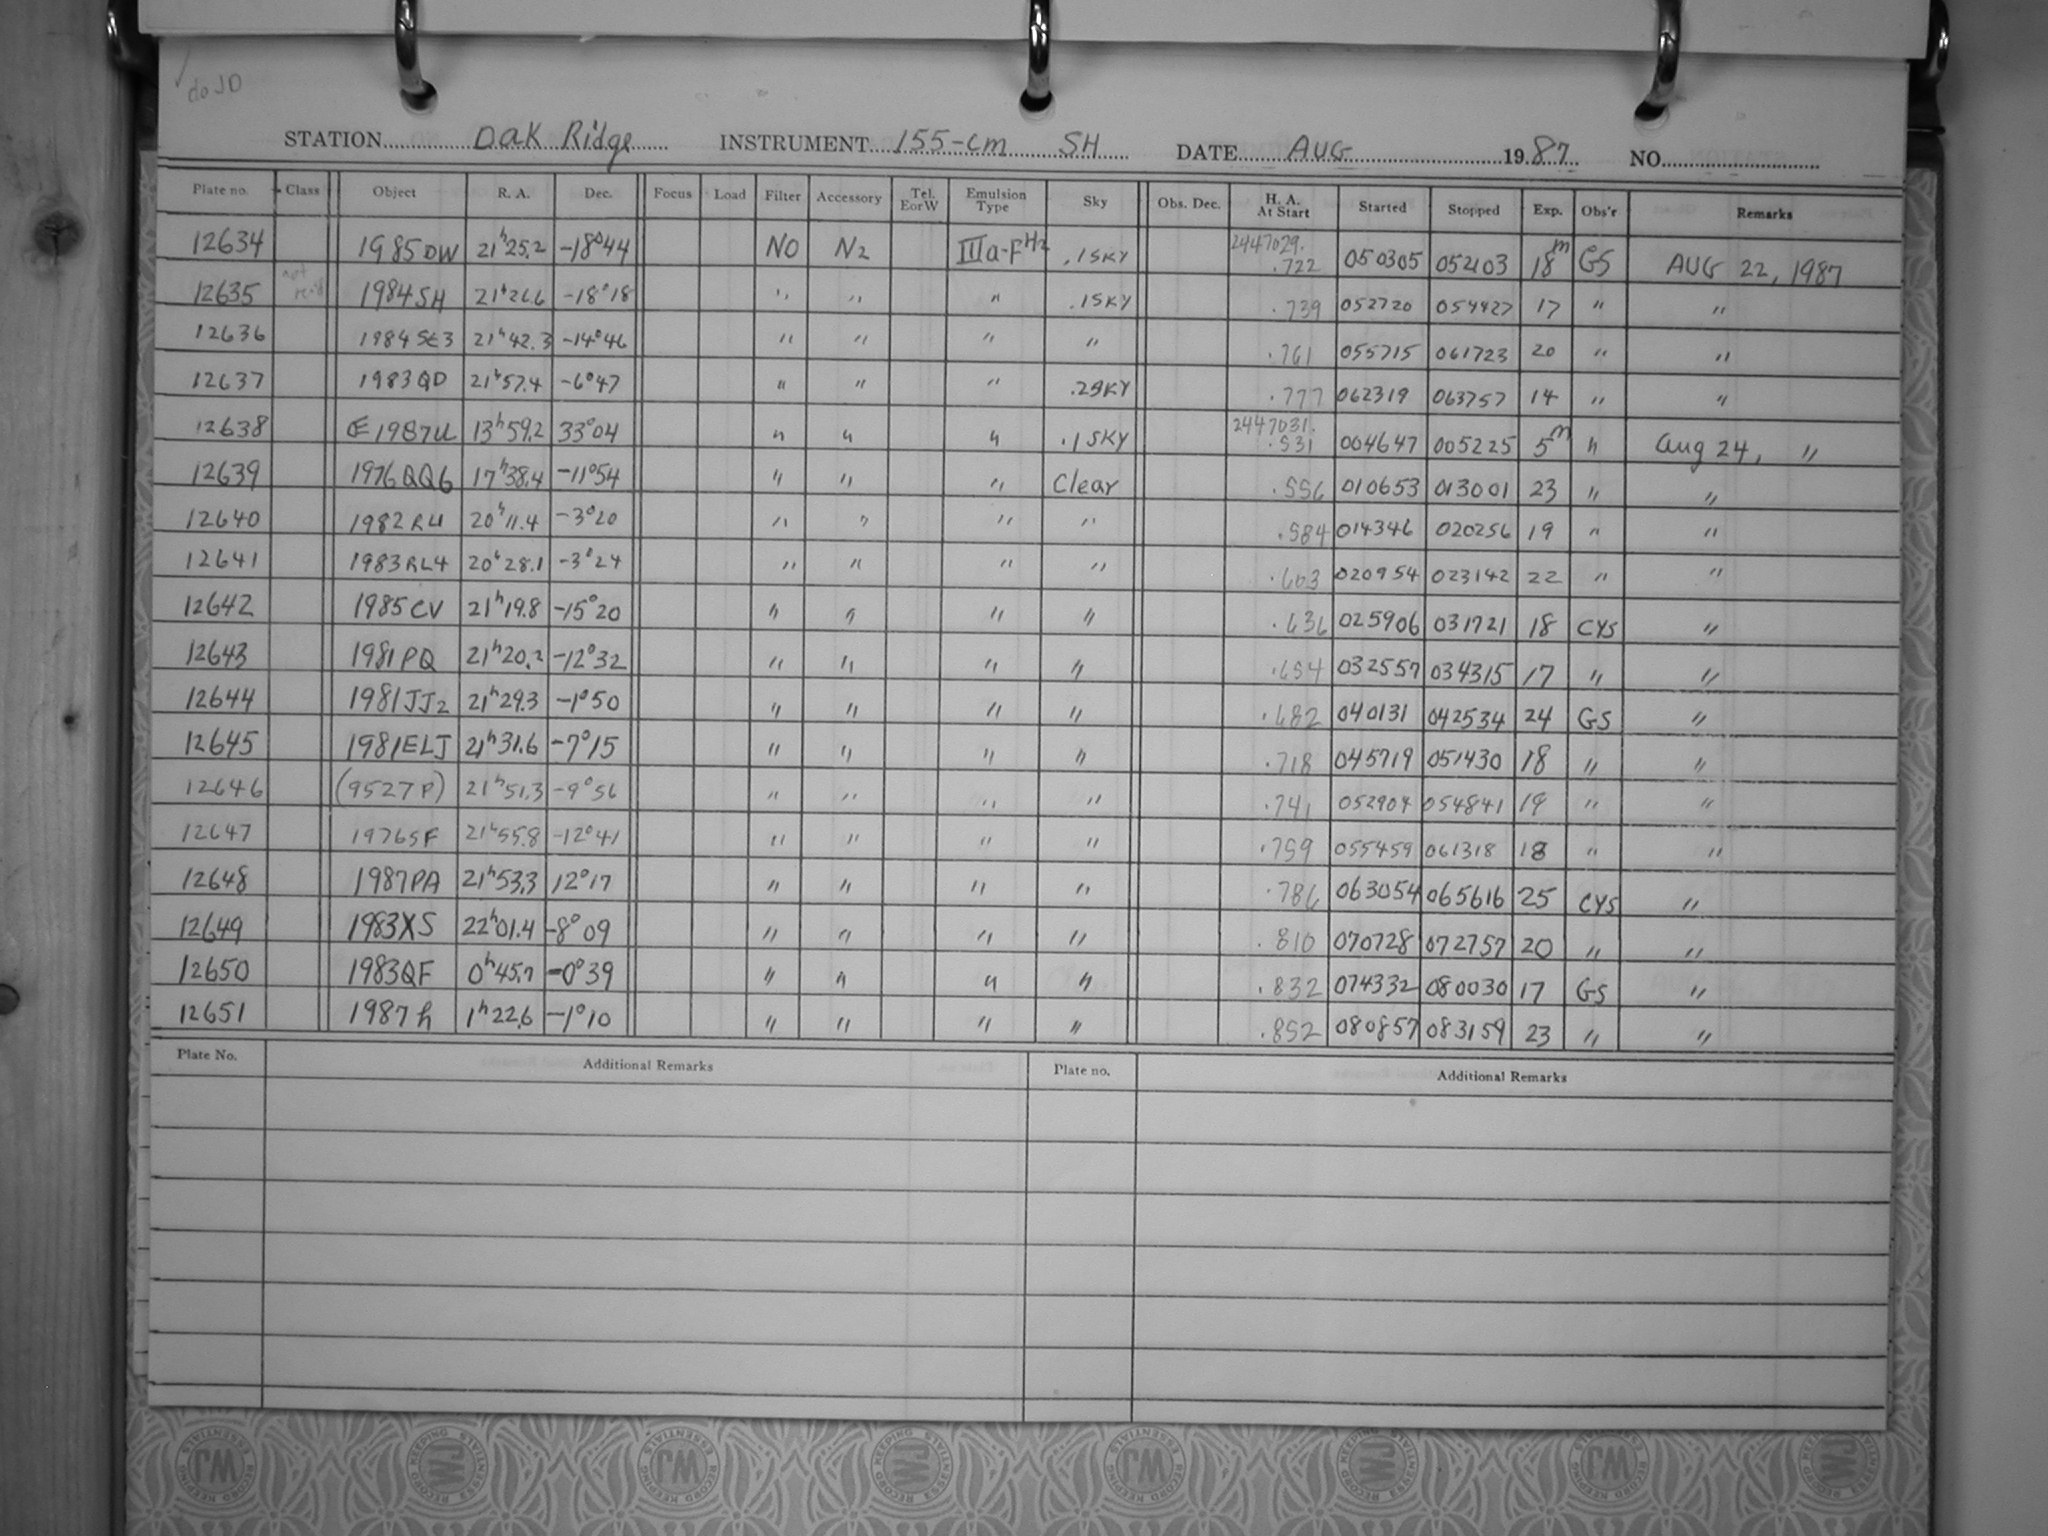 do JD
STATION Oak Ridge INSTRUMENT 155-cm SH DATE AUG 1987 NO.
Plate no. Class Object R. A. Dec. Focus Load Filter Accessory Tel. EorW Emulsion Type Sky Obs. Dec. H. A. At Start Started Stopped Exp. Obs'r Remarks
12634 1985 DW 21h25.2 -18°44 NO N2 IIIa-F H2 .1SKY 2447029. .722 050305 052103 18m GS AUG 22, 1987
12635 not 1984 SH 21h26.6 -18°18 " " " .1SKY .739 052720 054427 17 " "
12636 1984 SE3 21h42.3 -14°46 " " " " .761 055715 061723 20 " "
12637 1983 QD 21h57.4 -6°47 " " " .2SKY .777 062319 063757 14 " "
12638 1987U 13h59.2 33°04 " " " .1SKY 2447031. .531 004647 005225 5m " Aug 24, "
12639 1976 QQ6 17h38.4 -11°54 " " " Clear .556 010653 013001 23 " "
12640 1982 RU 20h11.4 -3°20 " " " " .584 014346 020256 19 " "
12641 1983 RL4 20h28.1 -3°24 " " " " .603 020954 023142 22 " "
12642 1985 CV 21h19.8 -15°20 " " " " .636 025906 031721 18 CYS "
12643 1981 PQ 21h20.2 -12°32 " " " " .654 032557 034315 17 " "
12644 1981 JJ2 21h29.3 -1°50 " " " " .682 040131 042534 24 GS "
12645 1981 ELJ 21h31.6 -7°15 " " " " .718 045719 051430 18 " "
12646 (9527P) 21h51.3 -9°56 " " " " .741 052904 054841 19 " "
12647 1976 SF 21h55.8 -12°41 " " " " .759 055459 061318 18 " "
12648 1987 PA 21h53.3 12°17 " " " " .786 063054 065616 25 CYS "
12649 1983 XS 22h01.4 -8°09 " " " " .810 070728 072757 20 " "
12650 1983 QF 0h45.7 -0°39 " " " " .832 074332 080030 17 GS "
12651 1987 h 1h22.6 -1°10 " " " " .852 080857 083159 23 " "
Plate No. Additional Remarks Plate no. Additional Remarks
JW RECORD KEEPING ESSENTIALS